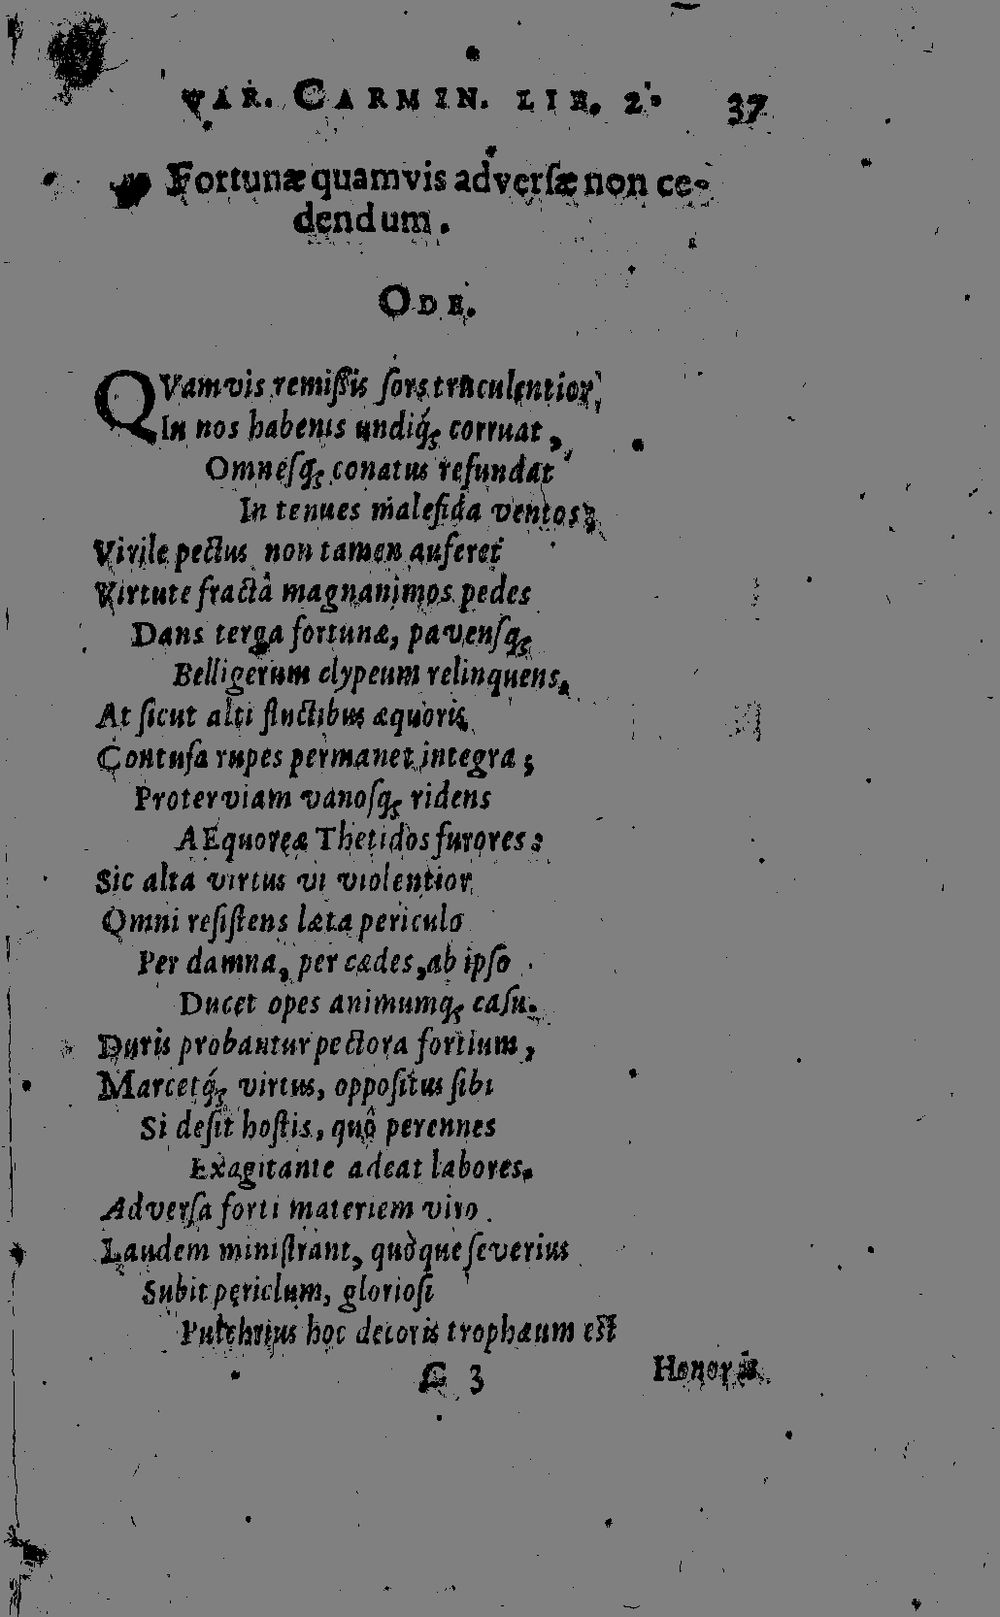 VAR. CARMIN. LIB. 2. 37
Fortunæ quamvis adversæ non ce-
dendum.
ODE.
QVamvis remiſſis ſors truculentior,
In nos habenis undiq́; corruat,
Omneſq; conatus refundat
In tenues malefida ventos;
Virile pectus non tamen auferet
Virtute fractâ magnanimos pedes
Dans terga fortunæ, pavenſq;
Belligerum clypeum relinquens.
At ſicut alti fluctibus æquoris
Contuſa rupes permanet integra;
Proterviam vanoſq; ridens
AEquoreæ Thetidos furores:
Sic alta virtus vi violentior
Omni reſiſtens læta periculo
Per damna, per cædes, ab ipſo
Ducet opes animumq; caſu.
Duris probantur pectora fortium,
Marcetq́; virtus, oppoſitus ſibi
Si deſit hoſtis, quô perennes
Exagitante adeat labores.
Adverſa forti materiem viro
Laudem miniſtrant, quòque ſeverius
Subit periclum, glorioſi
Pulchrius hoc decoris trophæum eſt
G 3 Honoris